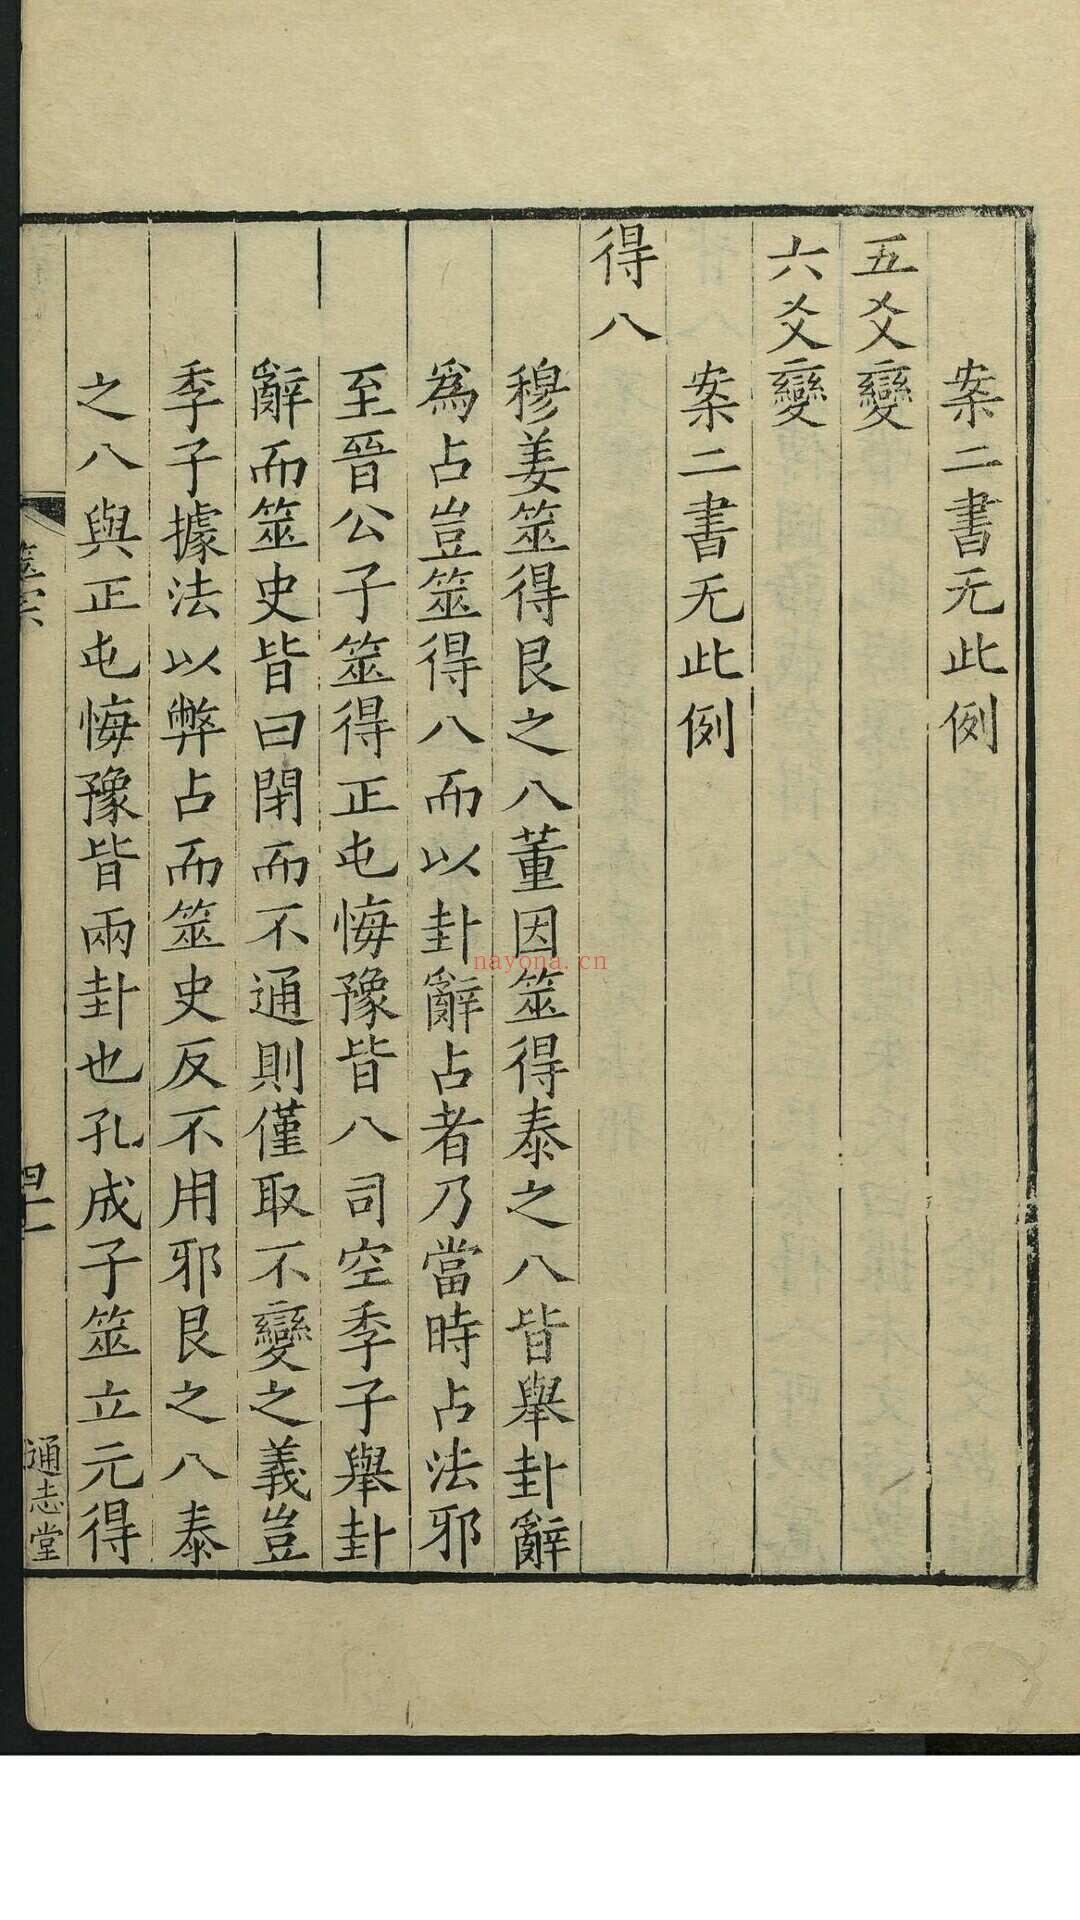 案二書无此例
五爻變
六爻變
案二書无此例
得八
穆姜筮得艮之八董因筮得泰之八皆舉卦辭
爲占豈筮得八而以卦辭占者乃當時占法邪
至晉公子筮得正屯悔豫皆八司空季子舉卦
辭而筮史皆曰閉而不通則僅取不變之義豈
季子據法以弊占而筮史反不用邪艮之八泰
之八與正屯悔豫皆兩卦也孔成子筮立元得
通志堂
nayona.cn